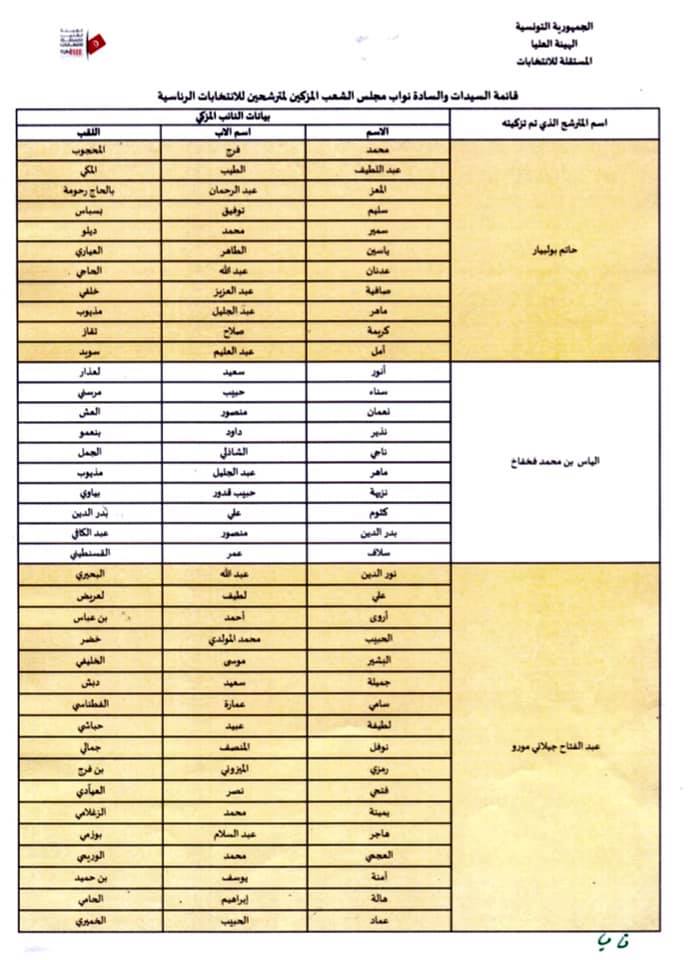 الجمهورية التونسية
الهيئة العليا
المستقلة للانتخابات
قائمة السيدات والسادة نواب مجلس الشعب المزكين لمترشحين للانتخابات الرئاسية
اسم المترشح الذي تم تزكيته بيانات النائب المزكي
الاسم اسم الاب اللقب
محمد فرج المحجوب
عبد اللطيف الطيب المكي
المعز عبد الرحمان بالحاج رحومة
سليم توفيق بسباس
سمير محمد ديلو
حاتم بولبيار ياسين الطاهر العياري
عدنان عبد الله الحاجي
صافية عبد العزيز خلفي
ماهر عبد الجليل مذيوب
كريمة صلاح تقاز
أمل عبد العليم سويد
أنور سعيد لعذار
سناء حبيب مرسني
نعمان منصور العش
نذير داود بنعمو
ناجي الشاذلي الجمل
الياس بن محمد فخفاخ ماهر عبد الجليل مذيوب
نزيهة حبيب قدور بياوي
كلثوم علي بدر الدين
بدر الدين منصور عبد الكافي
سلاف عمر القسنطيني
نور الدين عبد الله البحيري
علي لطيف لعريض
أروى أحمد بن عباس
الحبيب محمد المولدي خضر
البشير موسى الخليفي
جميلة سعيد دبش
سامي عمارة الفطناسي
لطيفة عبيد حباشي
عبد الفتاح جيلاني مورو نوفل المنصف جمالي
رمزي الميزوني بن فرج
فتحي نصر العيادي
يمينة محمد الزغلامي
هاجر عبد السلام بوزمي
العجمي محمد الوريمي
آمنة يوسف بن حميد
هالة إبراهيم الحامي
عماد الحبيب الخميري